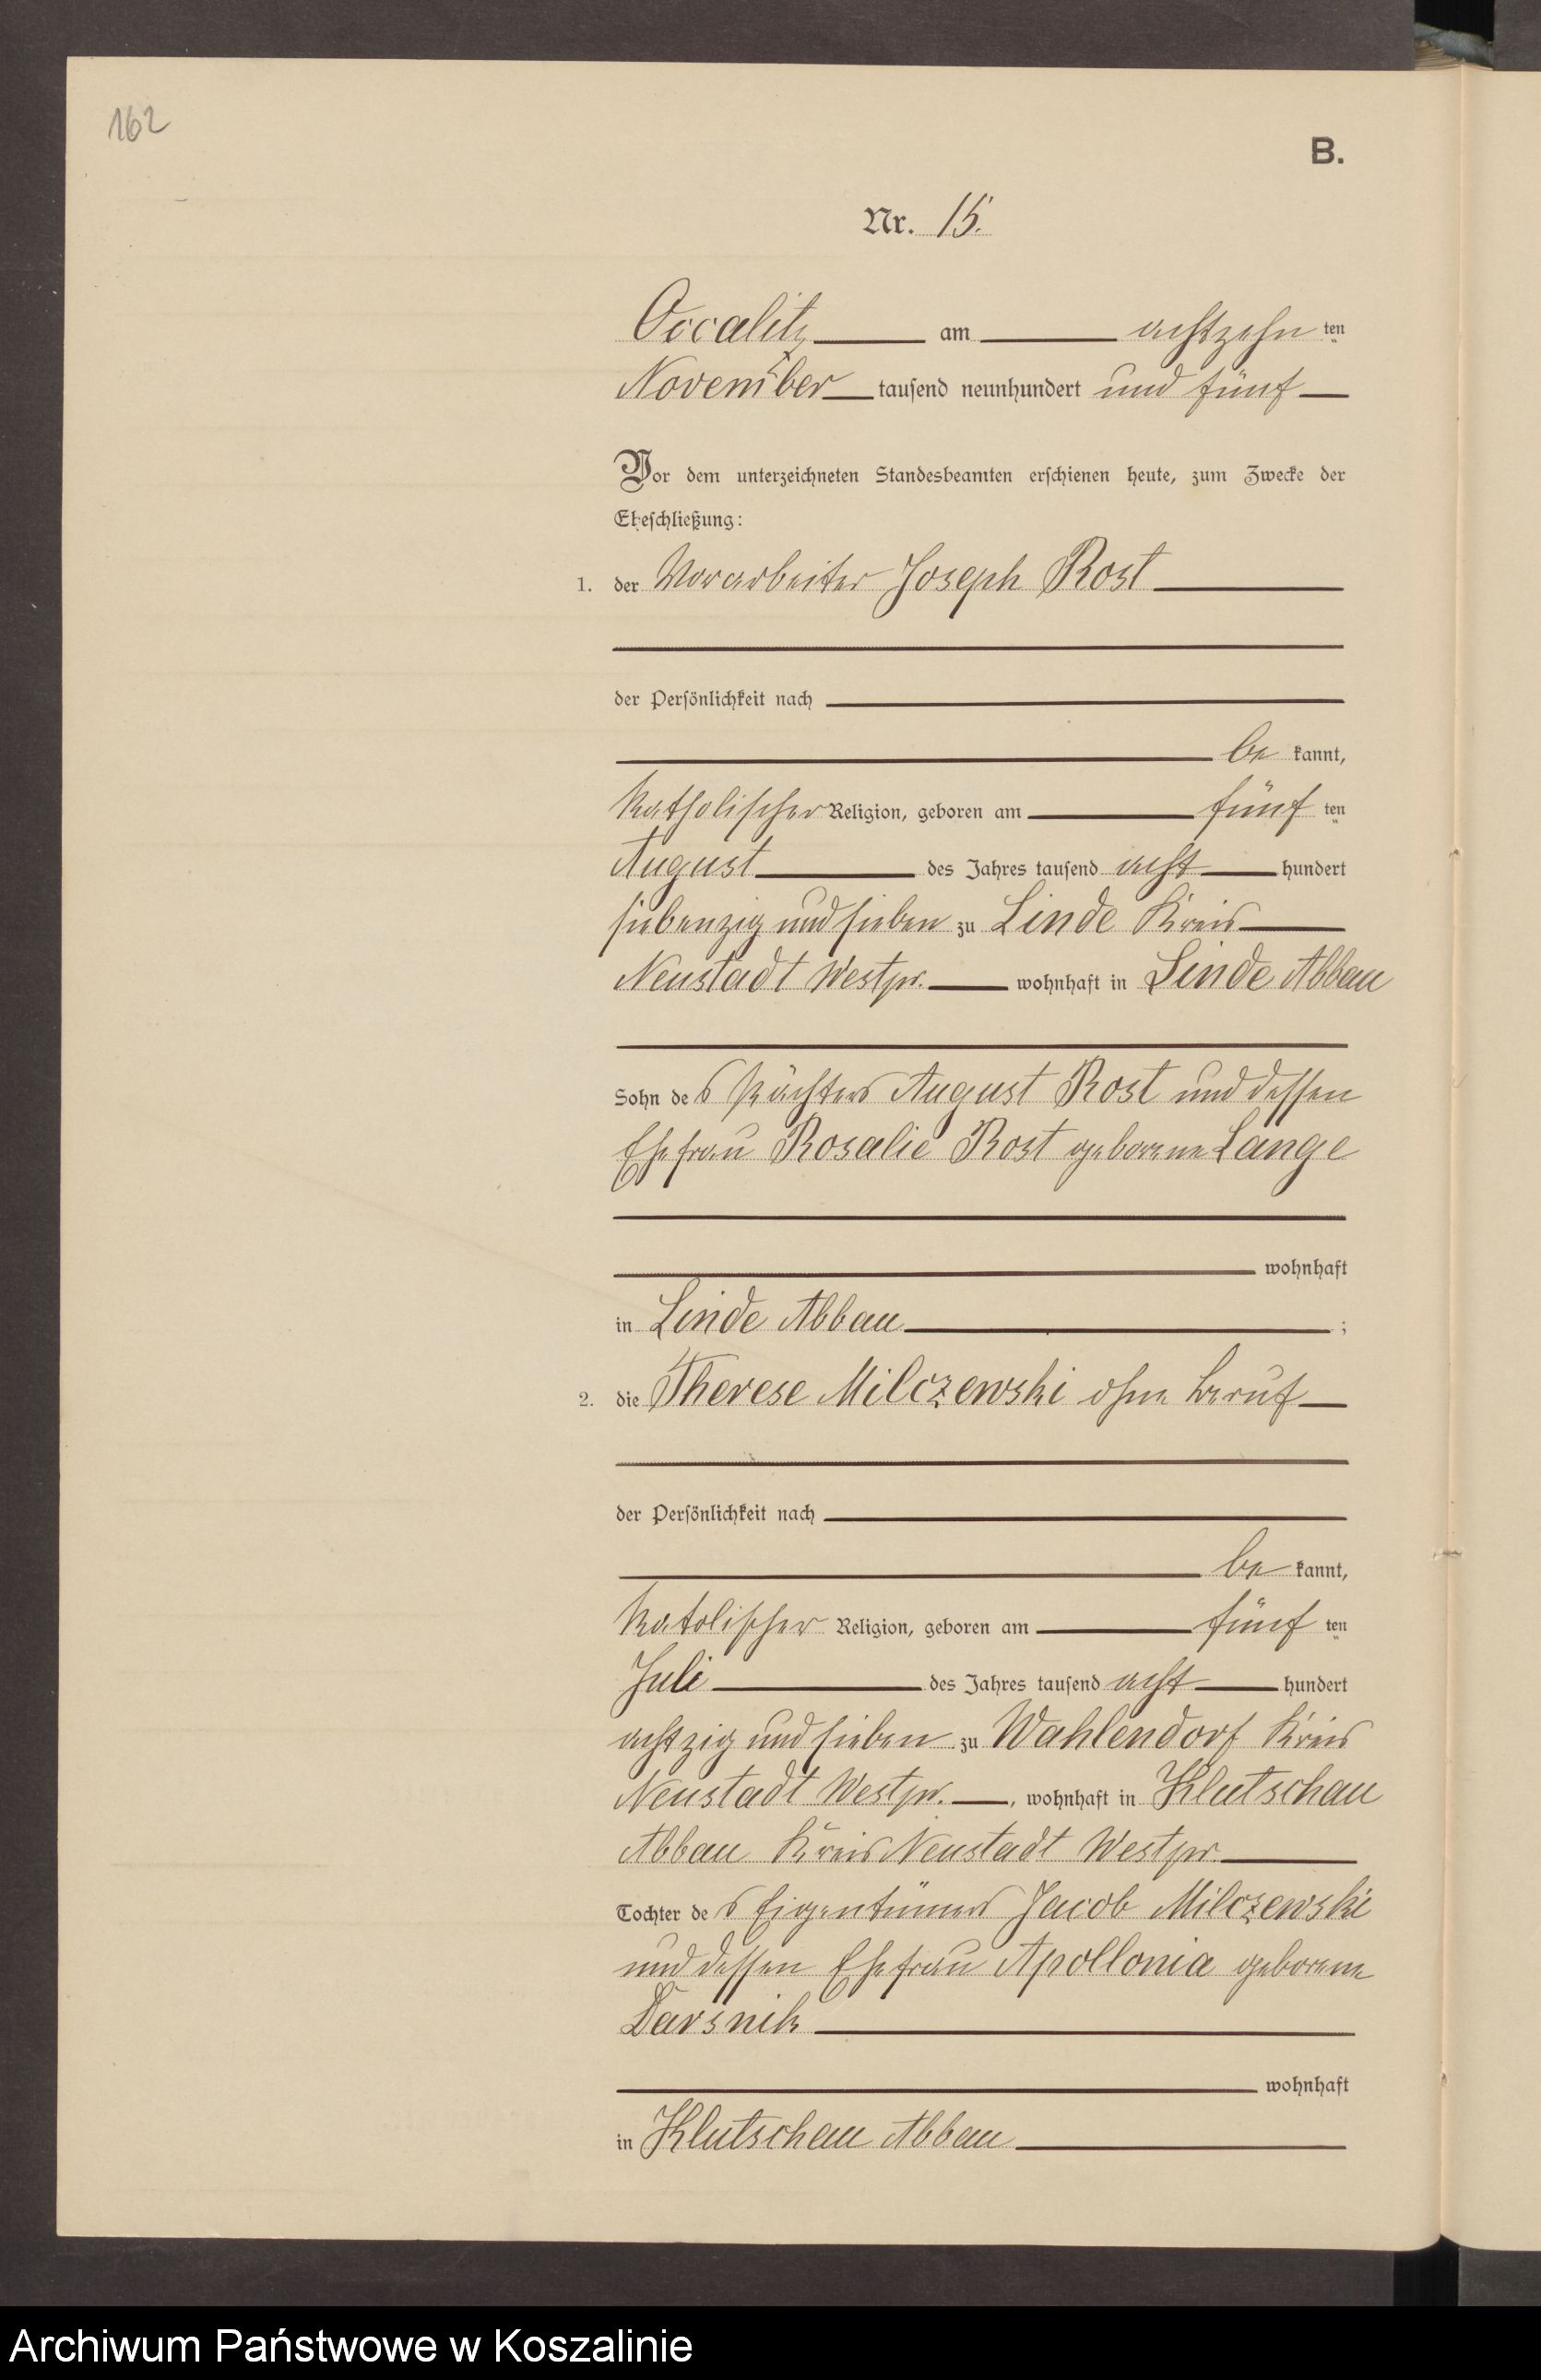 162
B.
Nr. 15.
Occalitz am achtzehn ten
November tausend neunhundert und fünf
Vor dem unterzeichneten Standesbeamten erschienen heute, zum Zwecke der
Eheschließung:
1. der Vorarbeiter Joseph Rost
der Persönlichkeit nach
be kannt,
katholischer Religion, geboren am fünf ten
August des Jahres tausend acht hundert
siebenzig und sieben zu Linde Kreis
Neustadt Westpr. wohnhaft in Linde Abbau
Sohn des Pächters August Rost und dessen
Ehefrau Rosalie Rost geborene Lange
wohnhaft
in Linde Abbau ;
2. die Therese Milczewski ohne Beruf
der Persönlichkeit nach
be kannt,
katolischer Religion, geboren am fünf ten
Juli des Jahres tausend acht hundert
achtzig und sieben zu Wahlendorf Kreis
Neustadt Westpr. , wohnhaft in Klutschau
Abbau Kreis Neustadt Westpr.
Tochter des Eigentümers Jacob Milczewski
und dessen Ehefrau Apollonia geborene
Darsnik
wohnhaft
in Klutschau Abbau
Archiwum Państwowe w Koszalinie